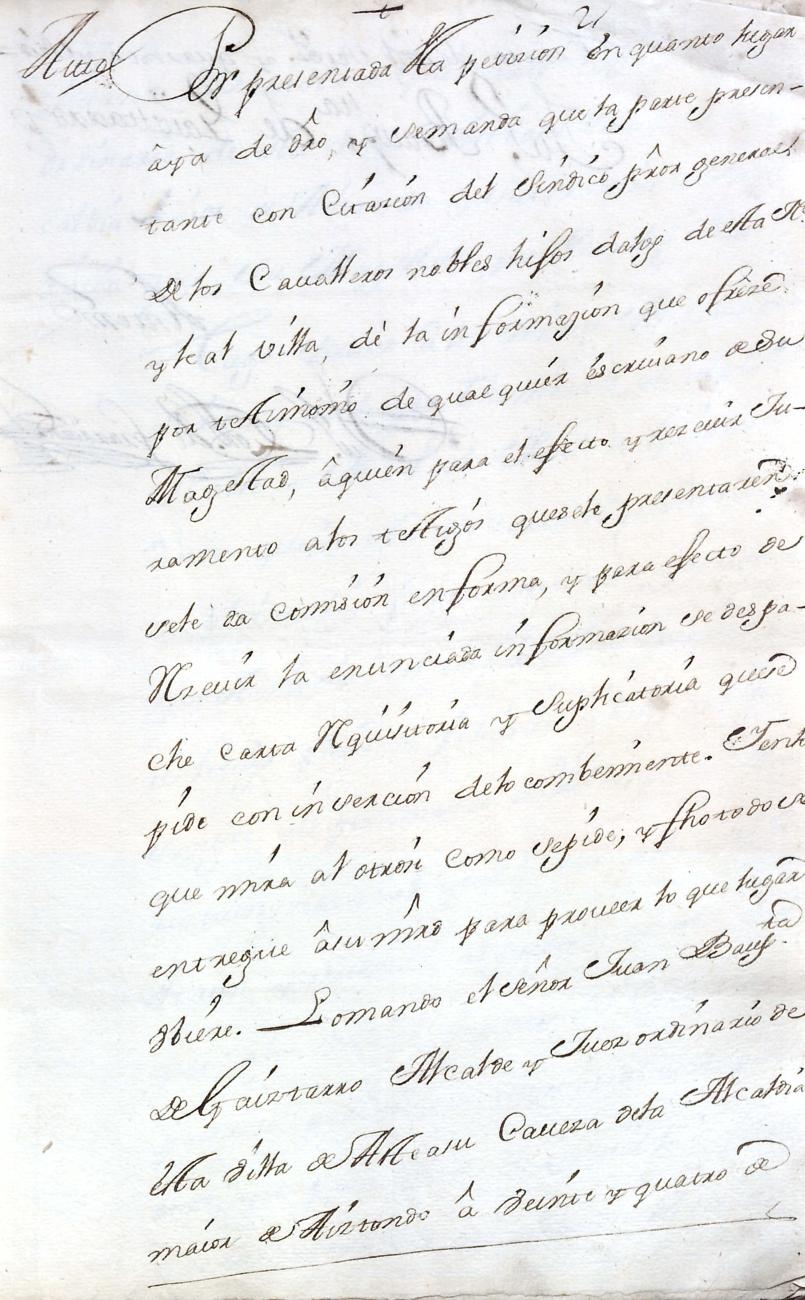 Autto Por presentada esta petision en quanto lugar
âya de dro, y se manda que la parte presen-
tante con Citazion del Sindico pror general
de los Cavalleros nobles hijos dalgo de esta N.
y leal villa, dè la informazion que ofreze
por testimonio de qualquier escriuano de Su
Magestad, âquien para el efecto y rezeuir Ju-
ramento a los testigos que se le presentaren
se le da Comision en forma, y para efecto de
Rzeuir la enunciada informazion se despa-
che carta Rquisitoria y Suplicatoria que se
pide con insercion de lo combeniente. Y en lo
que mira al otrosi como se pide, y fho todo se
entregue âsu mrd para proveer lo que lugar
vbiere. Lo mando el señor Juan Bauptta
de Yguiztarro Alcalde y Juez ordinario de
esta Villa de Asteasu Caueza dela Alcaldia
maior de Aiztondo â veinte y quatro de